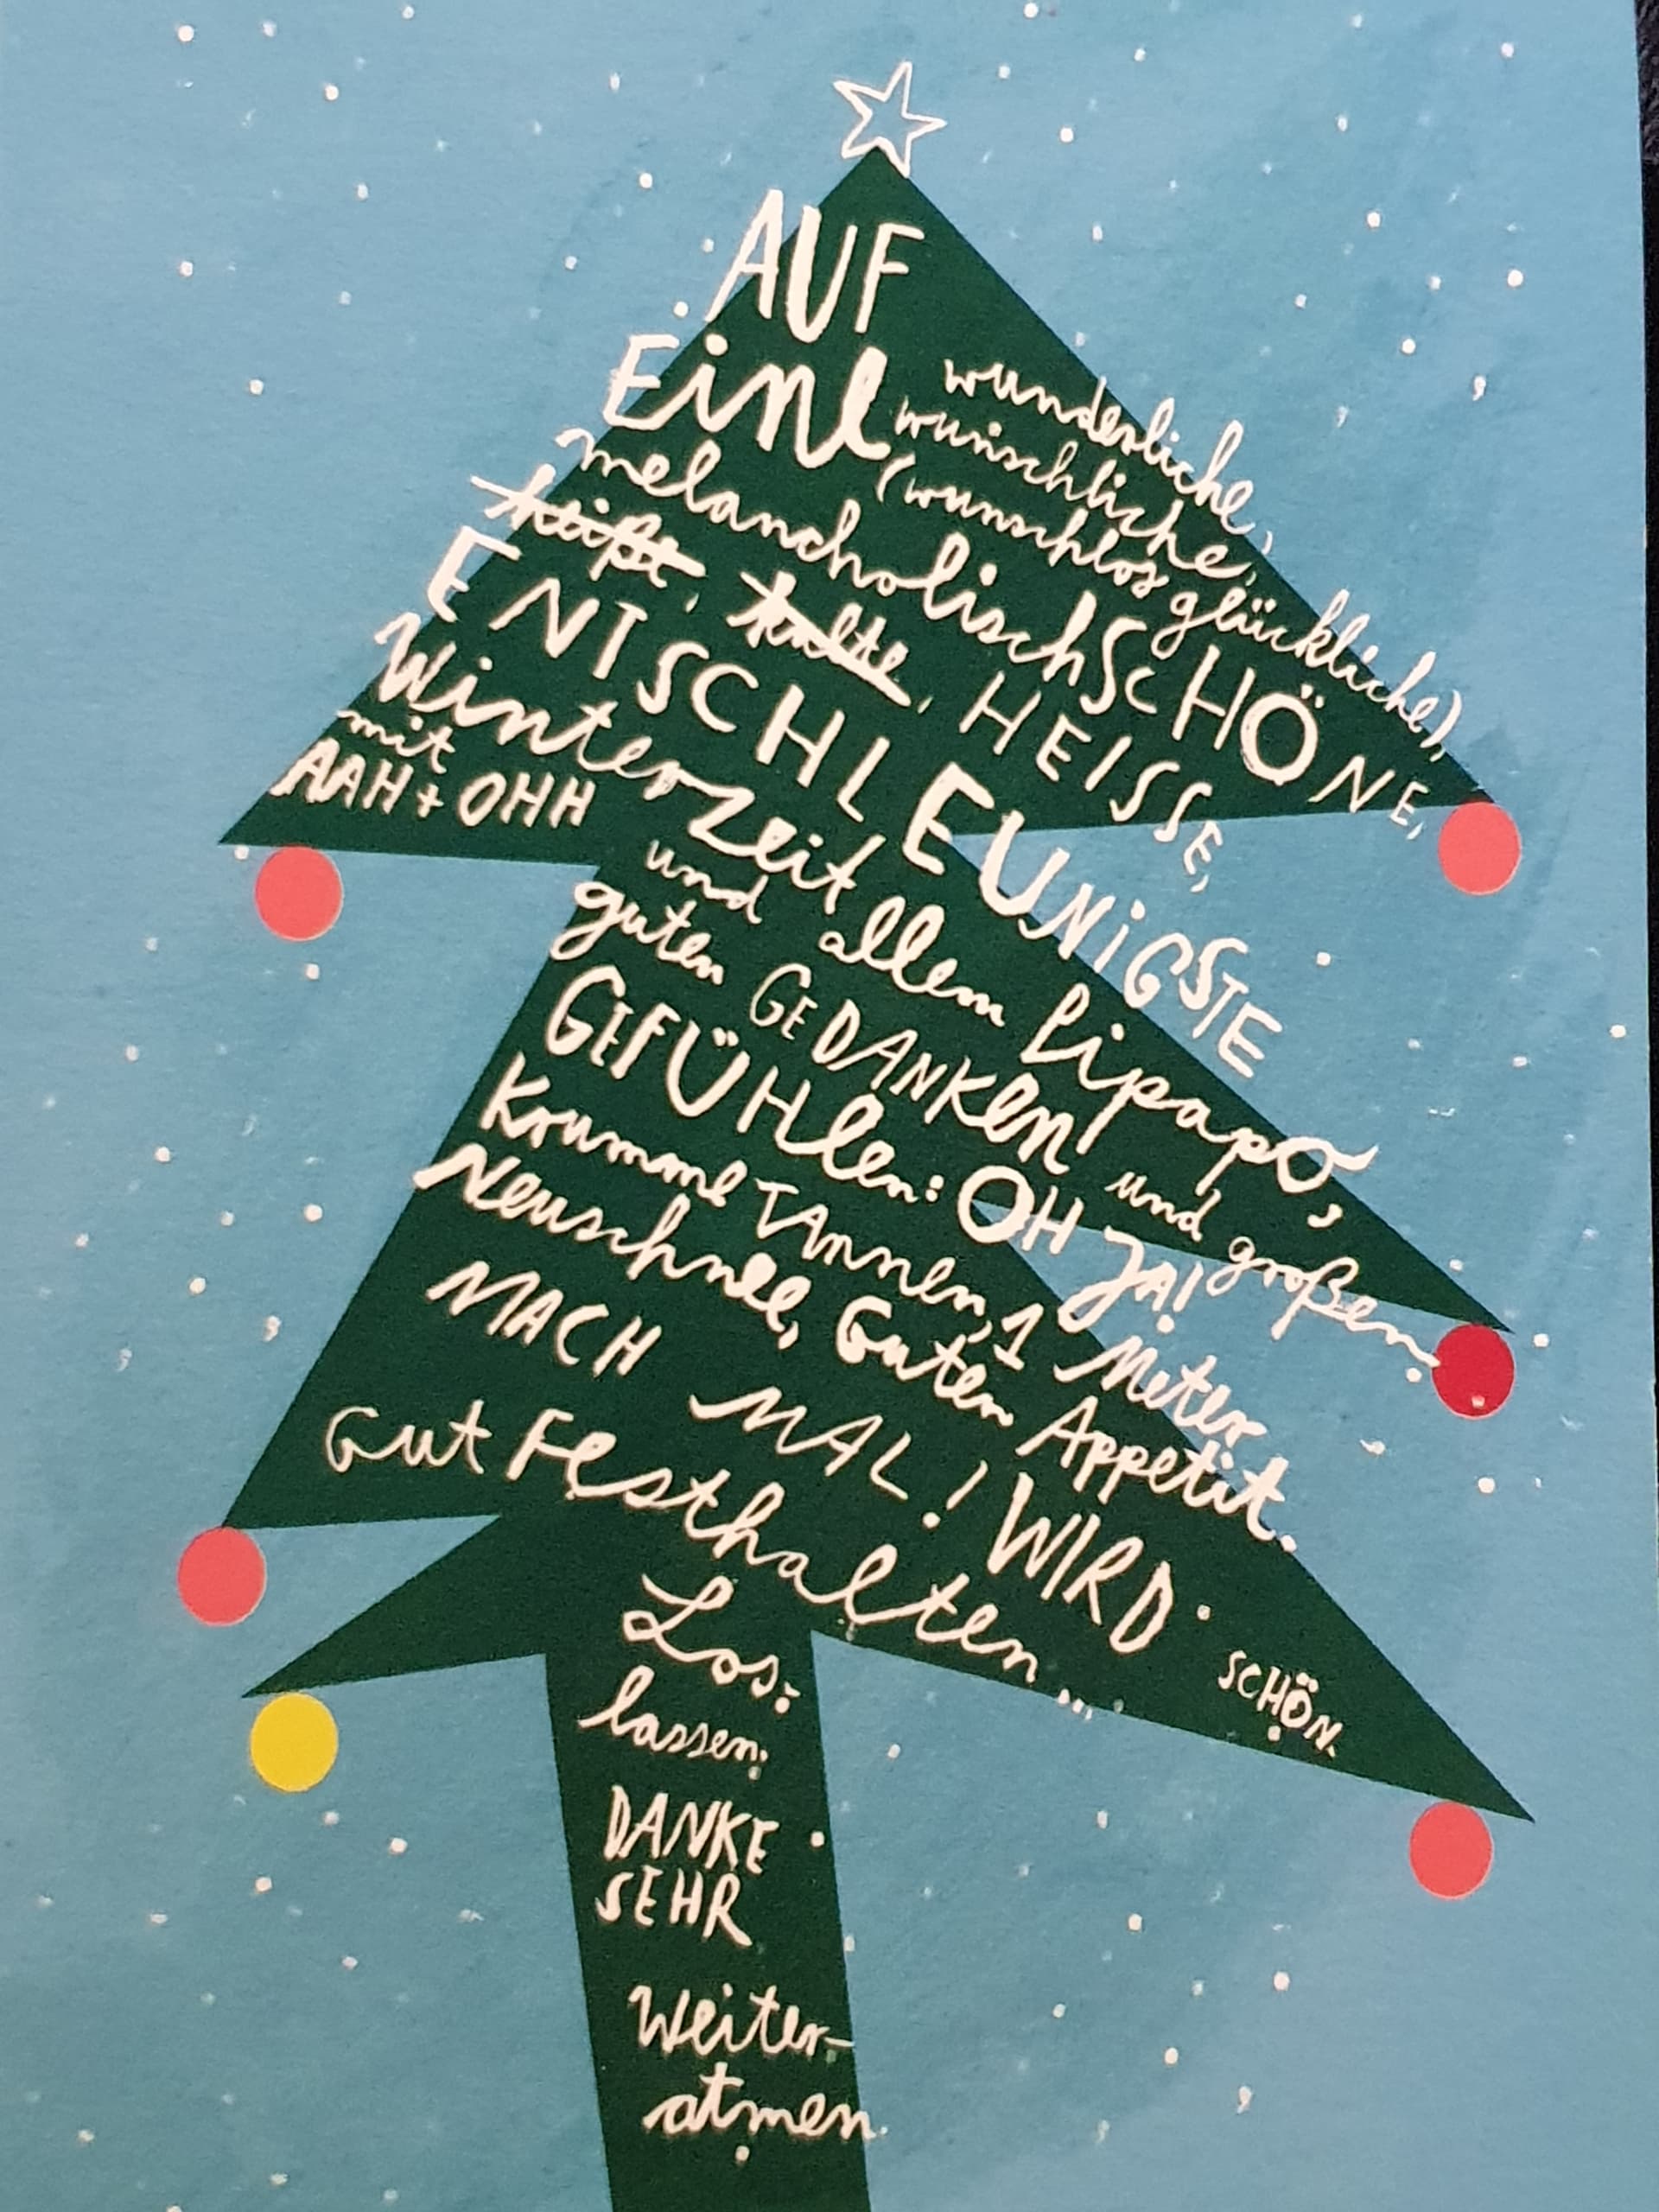 AUF
Eine wunderliche,
wünschliche,
(wunschlos glückliche),
melancholischSCHÖNE,
heißt, kalte, HEISSE,
ENTSCHLEUNIGSTE
Winterzeit
mit
AAH + OHH
und allem Lipapo,
guten GEDANKen und großen
GEFÜHlen: OH JA!
Krumme TAnnen, 1 Meter
Neuschnee, Guten Appetit.
MACH MAL! WIRD SCHÖN.
Gut Festhalten...
Los:
lassen.
DANKE
SEHR
Weiter-
atmen.